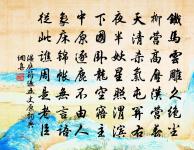 鐵馬雲雕久絕塵
柳營高壓漢營春
天清殺氣屯關右
夜半妖星照渭濱
下國臥龍空寤主
中原逐鹿不由人
象床錦帳無言語
從此譙周是老臣